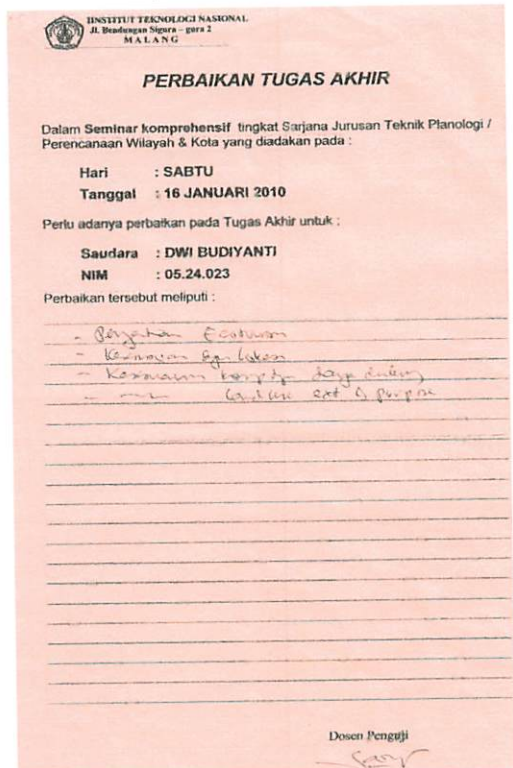 INSTITUT TEKNOLOGI NASIONAL
Jl. Bendungan Sigura – gura 2
MALANG
PERBAIKAN TUGAS AKHIR
Dalam Seminar komprehensif tingkat Sarjana Jurusan Teknik Planologi /
Perencanaan Wilayah & Kota yang diadakan pada :
Hari : SABTU
Tanggal : 16 JANUARI 2010
Perlu adanya perbaikan pada Tugas Akhir untuk :
Saudara : DWI BUDIYANTI
NIM : 05.24.023
Perbaikan tersebut meliputi :
-
- Kesesuaian
- Kesesuaian daya dukung
-
Dosen Penguji